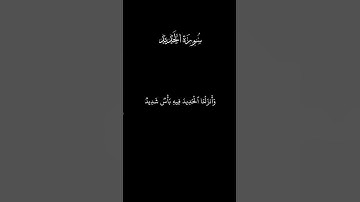 سُورَةُ الحَدِيدِ
وَأَنزَلْنَا ٱلْحَدِيدَ فِيهِ بَأْسٌ شَدِيدٌ